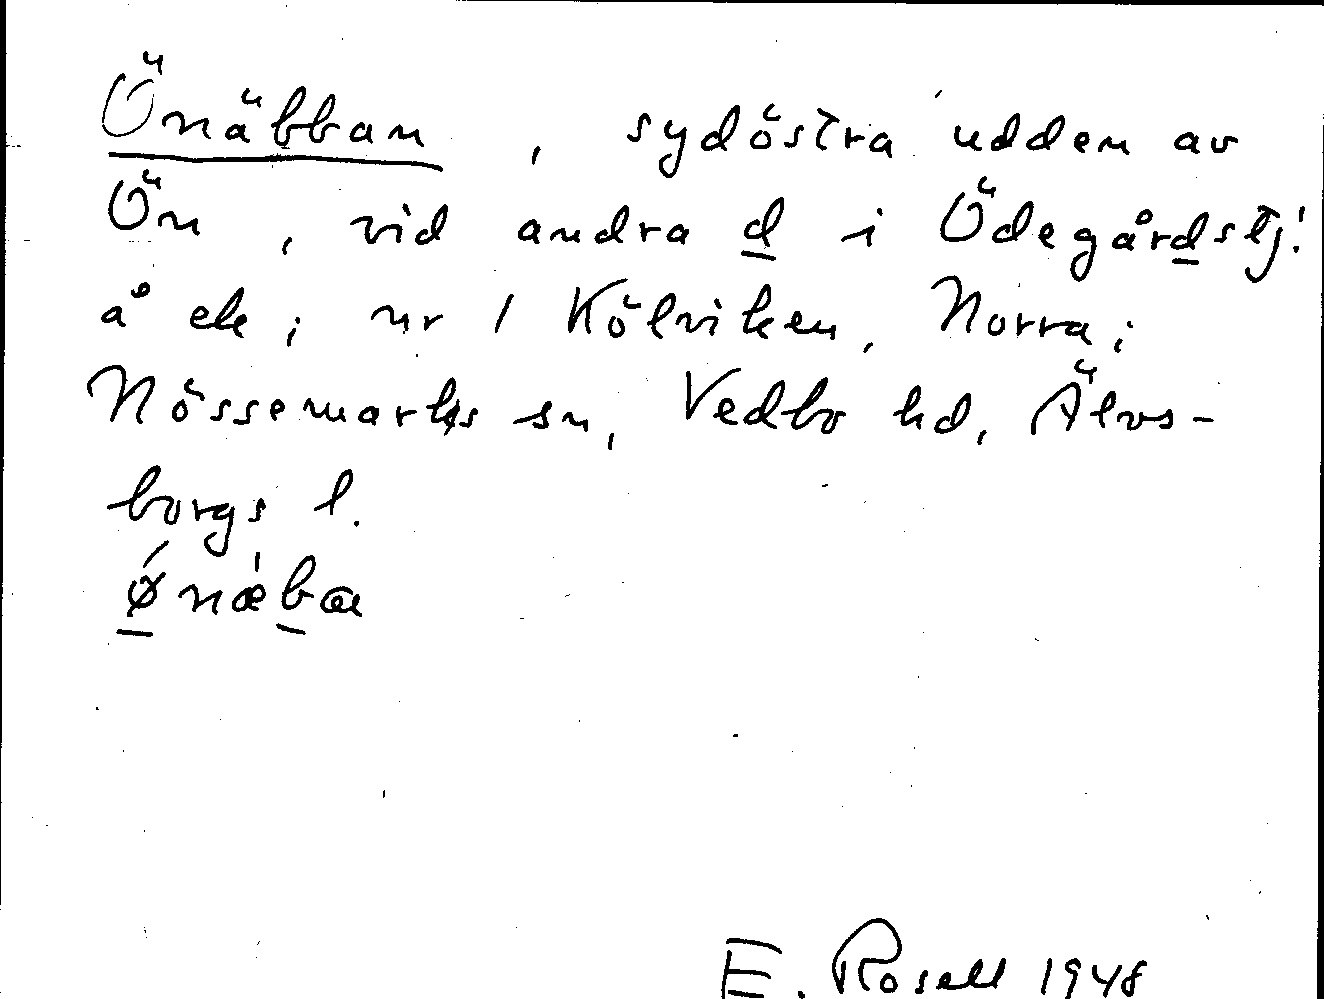 Önäbban, sydöstra udden av
Ön, vid andra d i Ödegårdstj.
å ek; nr 1 Kölviken, Norra;
Nössemarks sn, Vedbo hd, Älvs-
borgs l.
ǿnæ̀bɑ
E. Rosell 1948